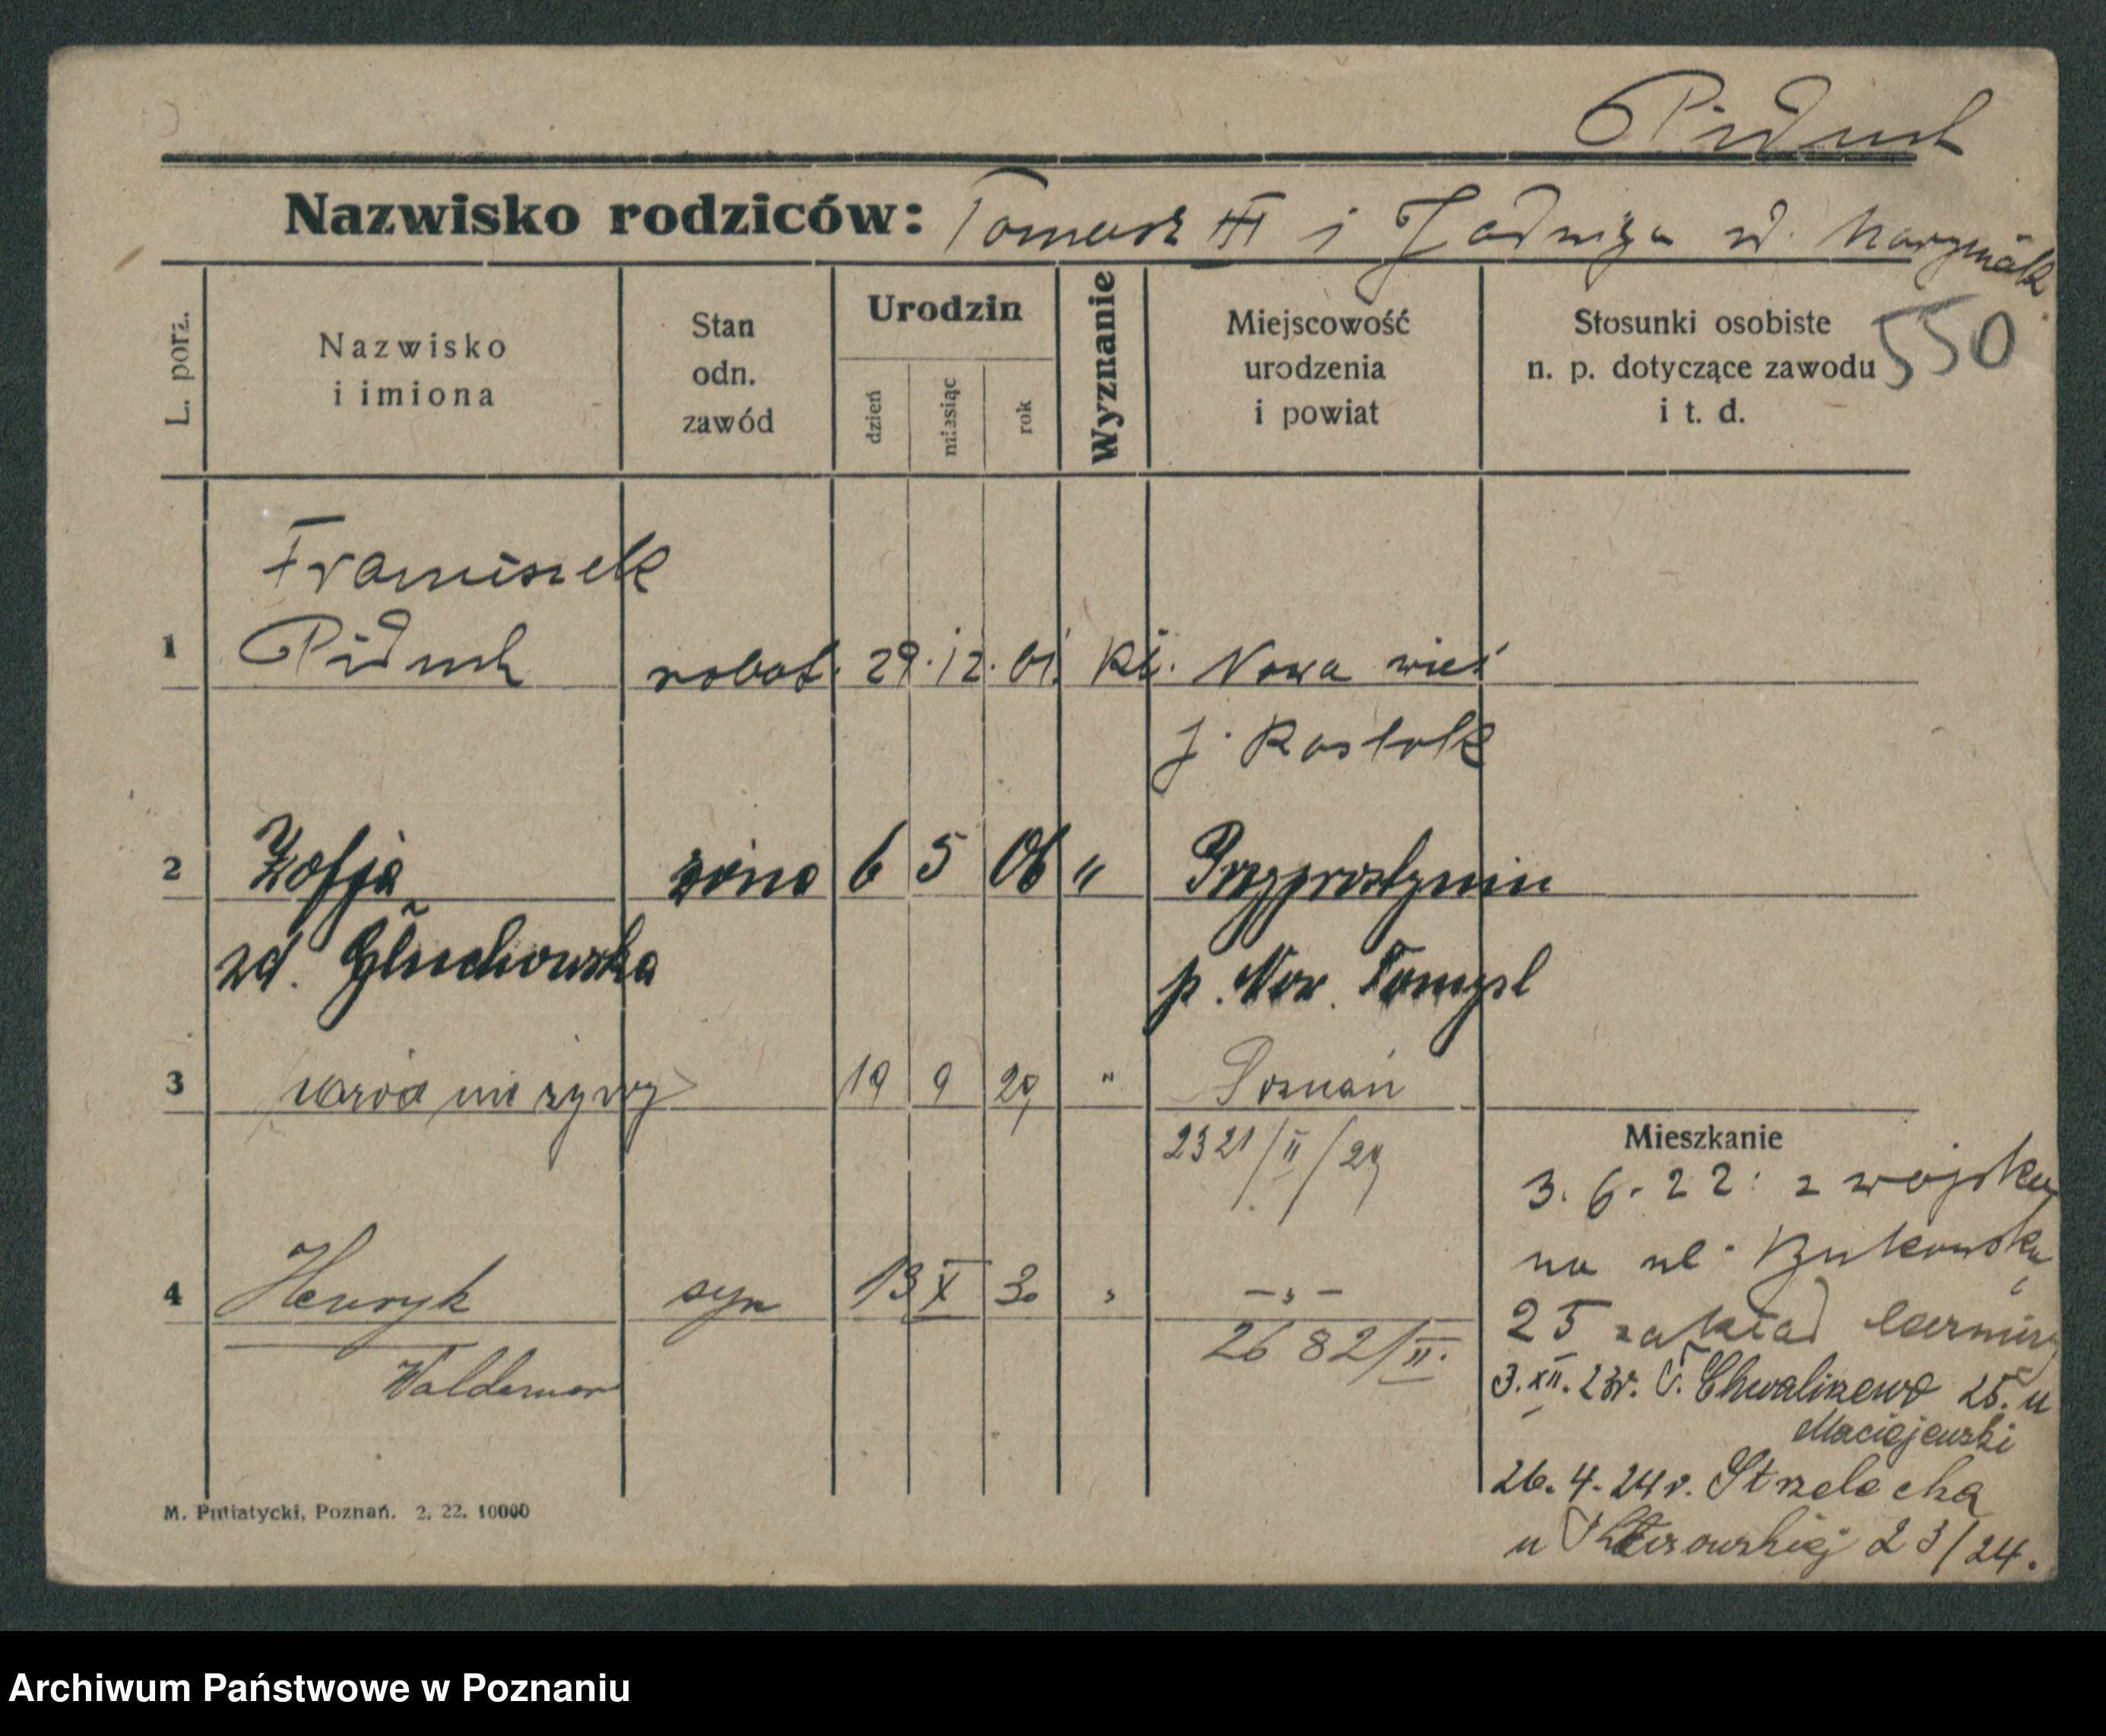 Piduch
Nazwisko rodziców: Tomasz III i Jadwiga zd. Marzyniak
L. porz.
Nazwisko
i imiona
Stan
odn.
zawód
Urodzin
dzień
miesiąc
rok
Wyznanie
Miejscowość
urodzenia
i powiat
Stosunki osobiste
n. p. dotyczące zawodu
i t. d.
550
Franciszek
1 Piduch robot. 29. 12. 01. kt. Nowa wieś
p. Rostok
2 Zofja żona 6 5 06 " Przyprostynia
zd. Głuchowska p. Now. Tomysl
3 nieżywy 19 9 29 " Poznań
2321/II/29
Mieszkanie
3. 6. 22: z wojska
na ul. Bukowską
4 Henryk syn 13 X 30 " — " —
25 zakład
2682/II.
Waldemar
3. XII. 23r. Chwaliszewo 25. u
Maciejewski
26. 4. 24r. Strzelecka
u 23/24.
M. Putiatycki, Poznań. 2. 22. 10000
Archiwum Państwowe w Poznaniu